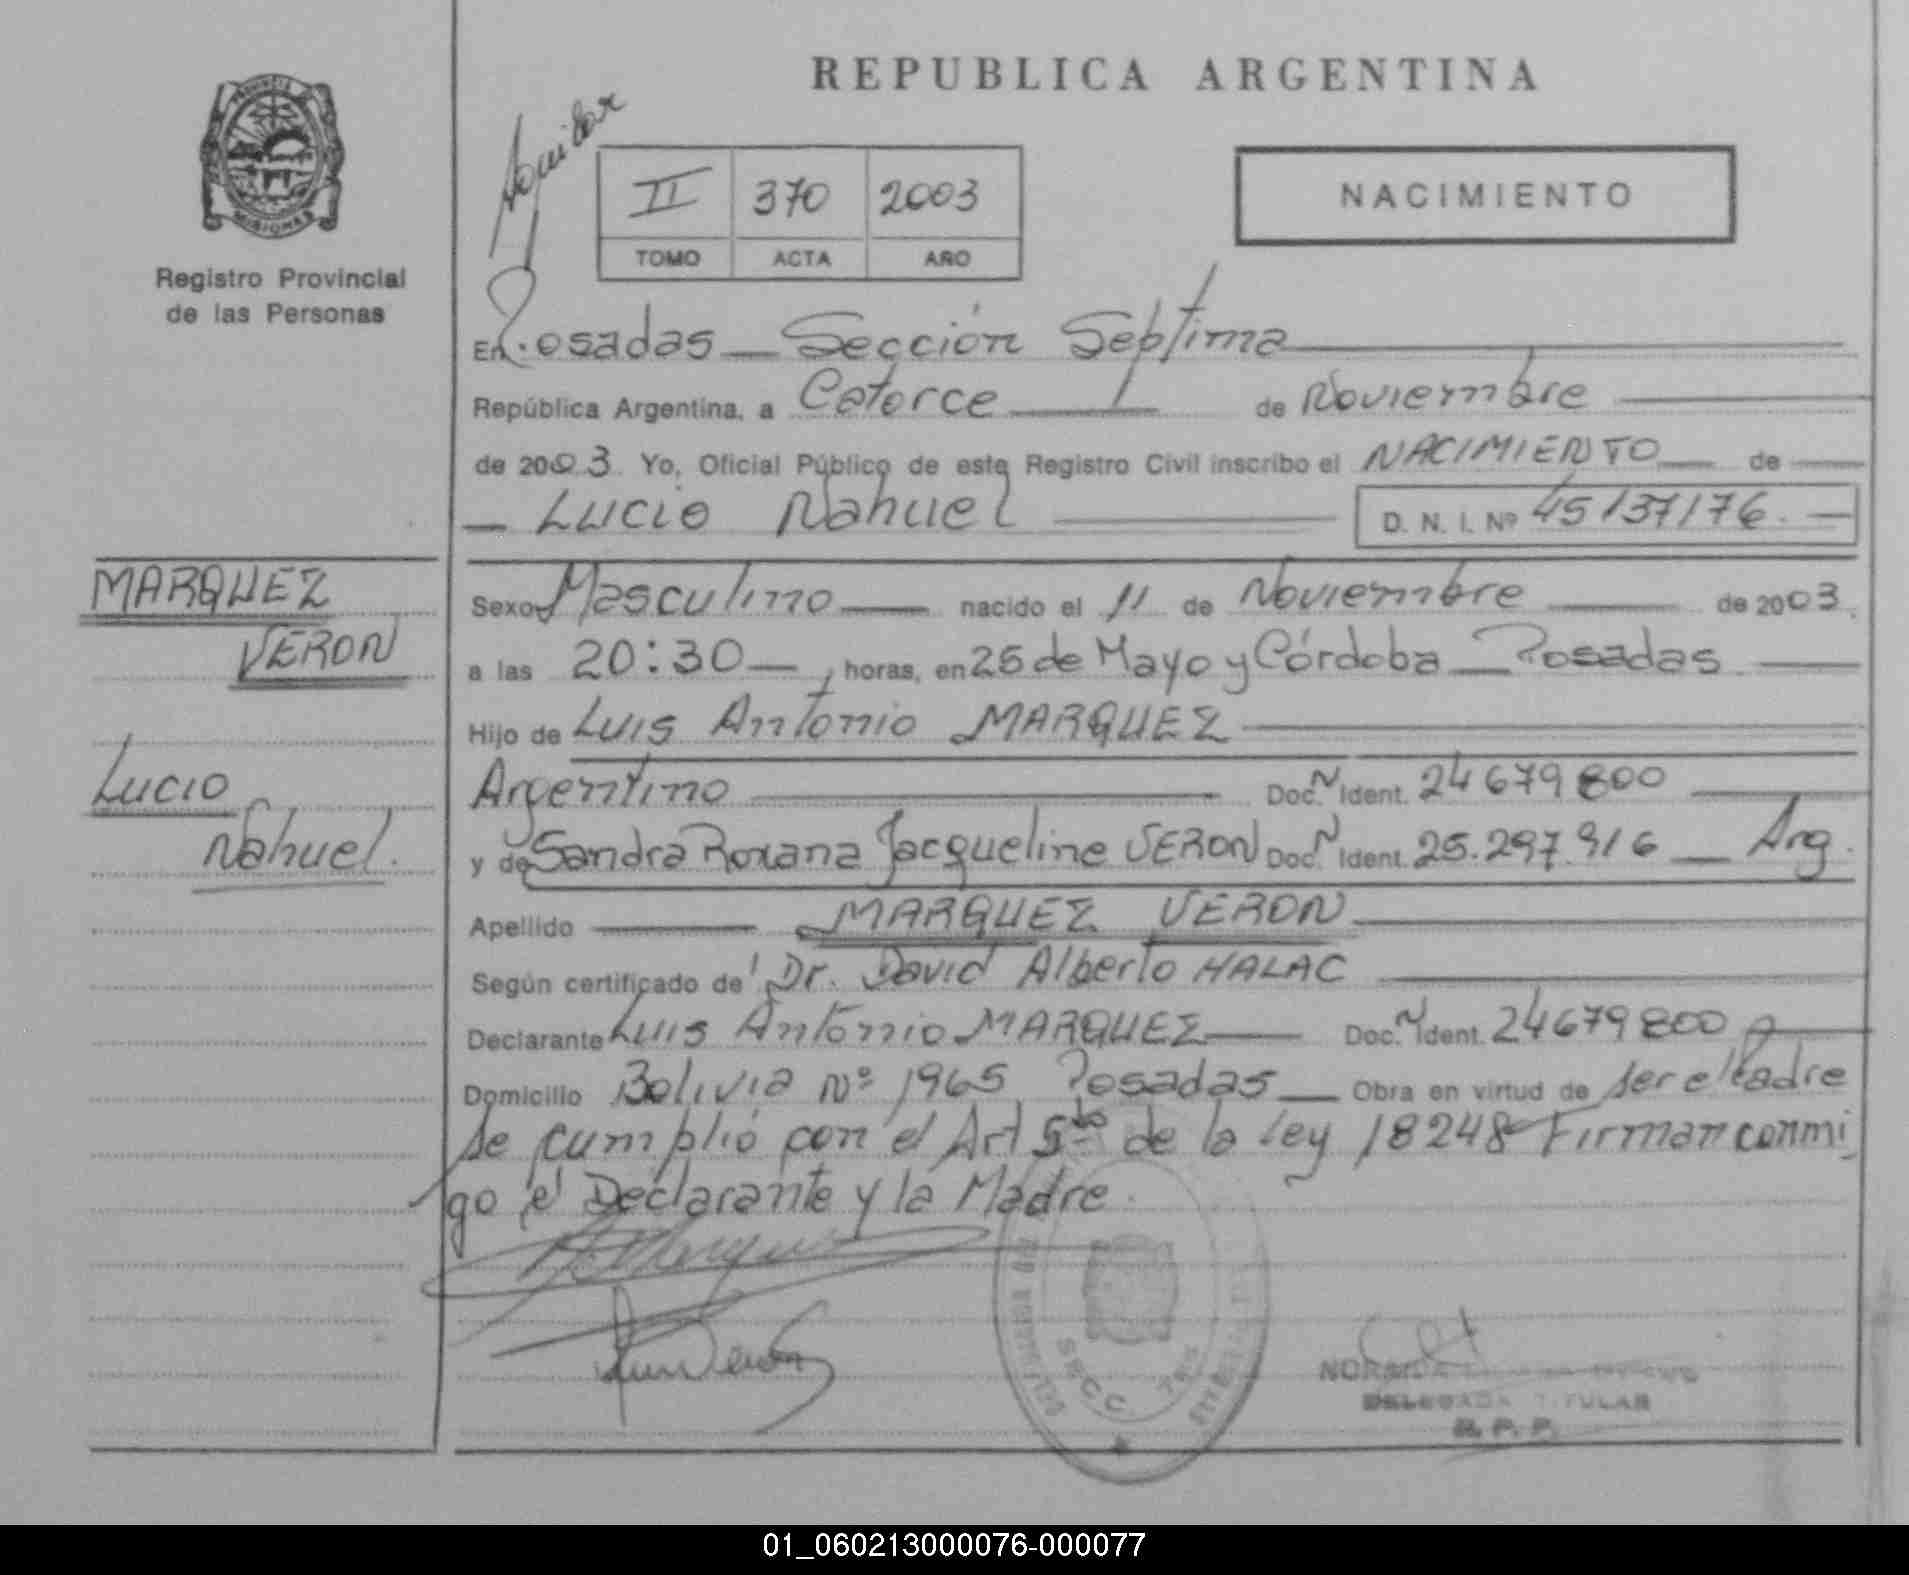 REPUBLICA ARGENTINA
Aguilar
PROVINCIA DE
MISIONES
Registro Provincial
de las Personas
II 370 2003
TOMO ACTA AÑO
NACIMIENTO
En Posadas Sección Septima
República Argentina, a Catorce de Noviembre
de 2003 Yo, Oficial Público de este Registro Civil inscribo el NACIMIENTO de
Lucio Nahuel D. N. I. Nº 45137176.
MARQUEZ
VERON
Lucio
Nahuel.
Sexo Masculino nacido el 11 de Noviembre de 2003
a las 20:30 horas, en 25 de Mayo y Córdoba Posadas
Hijo de Luis Antonio MARQUEZ
Argentino Doc. Ident. 24679800
y de Sandra Roxana Jacqueline VERON Doc. Ident. 25.297.916 Arg.
Apellido MARQUEZ VERON
Según certificado de Dr. David Alberto HALAC
Declarante Luis Antonio MARQUEZ Doc. Ident. 24679800
Domicilio Bolivia Nº 1965 Posadas Obra en virtud de ser el Padre
Se cumplió con el Art 5to de la Ley 18248 Firman conmi
go el Declarante y la Madre.
SECC.
DELEGADA TITULAR
R. P. P.
01_060213000076-000077